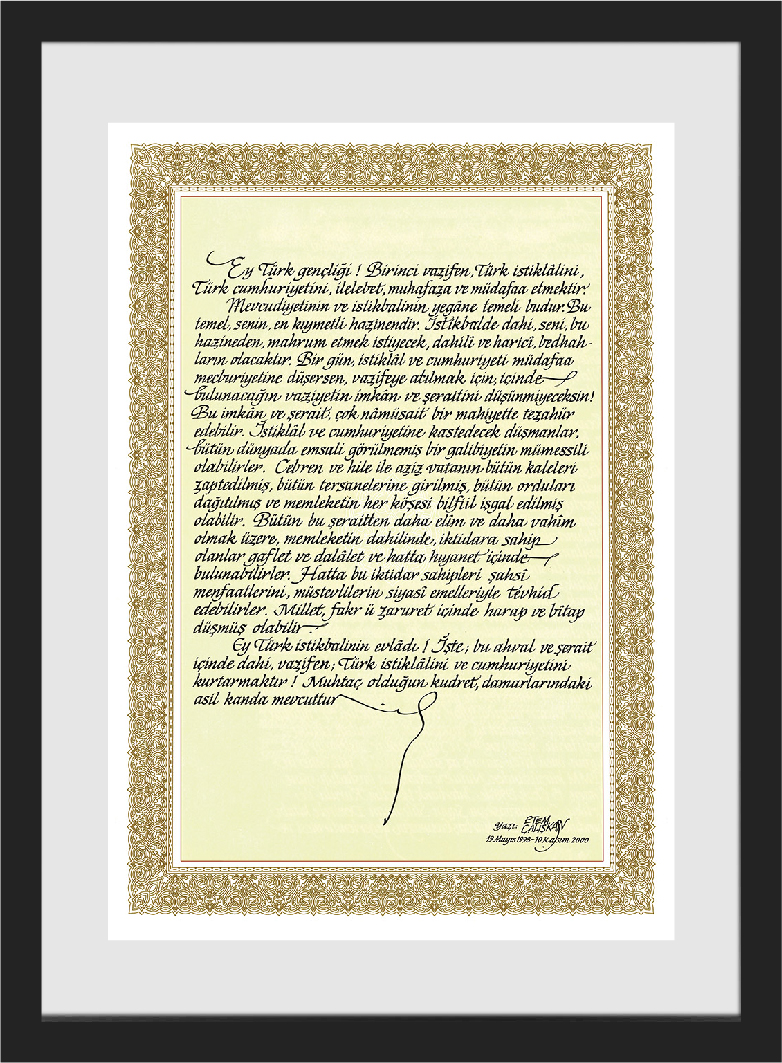 Ey Türk gençliği ! Birinci vazifen, Türk istiklâlini,
Türk cumhuriyetini, ilelebet, muhafaza ve müdafaa etmektir.
Mevcudiyetinin ve istikbalinin yegâne temeli budur. Bu
temel, senin, en kıymetli hazinendir. İstikbalde dahi, seni, bu
hazineden, mahrum etmek istiyecek, dahilî ve haricî, bedhah-
ların olacaktır. Bir gün, istiklâl ve cumhuriyeti müdafaa
mecburiyetine düşersen, vazifeye atılmak için, içinde
bulunacağın vaziyetin imkân ve şeraitini düşünmiyeceksin!
Bu imkân ve şerait, çok nâmüsait bir mahiyette tezahür
edebilir. İstiklâl ve cumhuriyetine kastedecek düşmanlar,
bütün dünyada emsali görülmemiş bir galibiyetin mümessili
olabilirler. Cebren ve hile ile aziz vatanın bütün kaleleri
zaptedilmiş, bütün tersanelerine girilmiş, bütün orduları
dağıtılmış ve memleketin her köşesi bilfiil işgal edilmiş
olabilir. Bütün bu şeraitten daha elîm ve daha vahim
olmak üzere, memleketin dahilinde, iktidara sahip
olanlar gaflet ve dalâlet ve hatta hıyanet içinde
bulunabilirler. Hatta bu iktidar sahipleri şahsî
menfaatlerini, müstevlilerin siyasî emelleriyle tevhid
edebilirler. Millet, fakr ü zaruret içinde harap ve bîtap
düşmüş olabilir.
Ey Türk istikbalinin evlâdı ! İşte; bu ahval ve şerait
içinde dahi, vazifen; Türk istiklâlini ve cumhuriyetini
kurtarmaktır ! Muhtaç olduğun kudret, damarlarındaki
asil kanda mevcuttur
Yazı: ETEM
ÇALIŞKAN
Kasım 2000